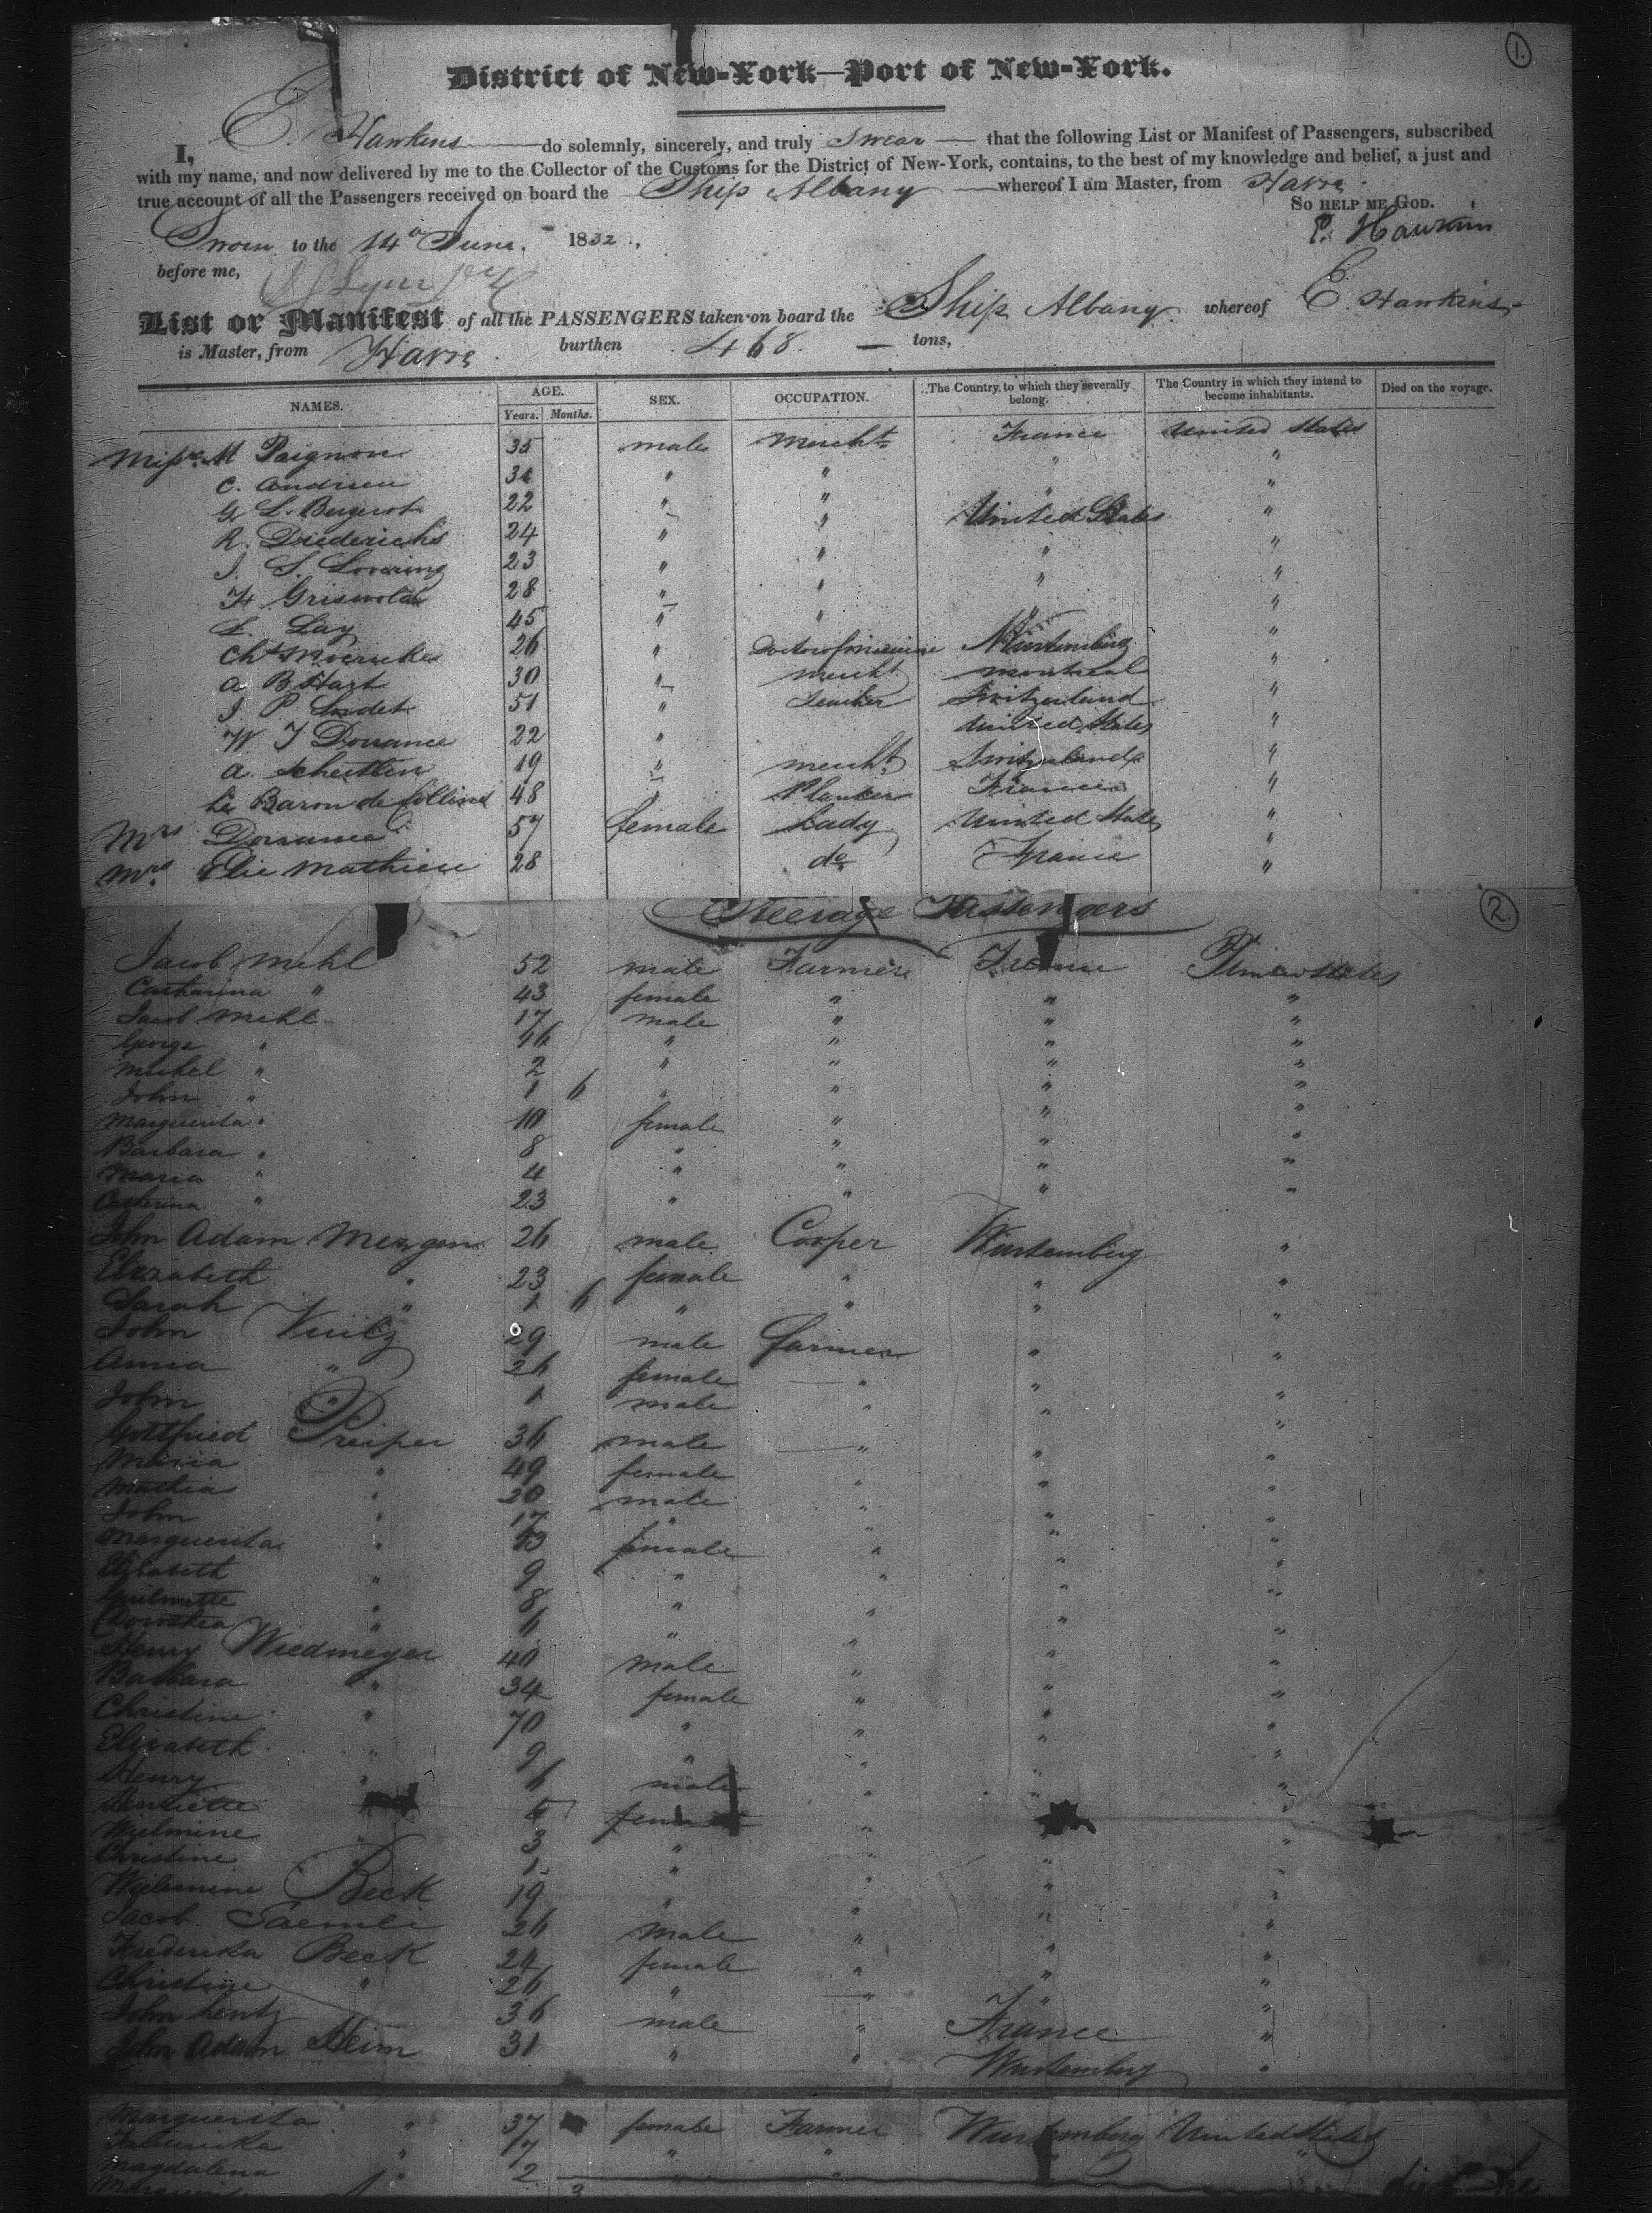 1.
District of New-York—Port of New-York.
I, E. Hawkins do solemnly, sincerely, and truly Swear — that the following List or Manifest of Passengers, subscribed
with my name, and now delivered by me to the Collector of the Customs for the District of New-York, contains, to the best of my knowledge and belief, a just and
true account of all the Passengers received on board the Ship Albany whereof I am Master, from Havre
So help me God.
Sworn to the 14th June. 1832.
E. Hawkins
before me,
List or Manifest of all the PASSENGERS taken on board the Ship Albany whereof E. Hawkins
is Master, from Havre burthen 468 — tons,
NAMES. AGE. Years. Months. SEX. OCCUPATION. The Country to which they severally belong. The Country in which they intend to become inhabitants. Died on the voyage.
M Poignon 35 male Mercht France United States
C. Andrieu 34 " " " "
G L. Bergerot 22 " " " "
R. Diederichs 24 " " United States "
J. S. Lovering 23 " " " "
H Griswold 28 " " " "
L. Lay 45 " " " "
Chs Moericke 26 " Doctor of medicine Wurtemberg "
A B Hart 30 " mercht Montreal "
J. P. 51 " Teacher Switzerland "
W J Dorrance 22 " United States "
A. Scheitlin 19 " mercht Switzerland "
Le Baron de 48 " Planter France "
Mrs Dorrance 57 female Lady United States "
Mrs Elie Mathieu 28 do France "
2
Steerage Passengers
Jacob Mehl 52 male Farmer France United States
Catharina " 43 female " " "
Jacob Mehl 17 male " " "
George " " " " "
Michel " 2 " " " "
John " 1 6 " " " "
Marguerita " 10 female " " "
Barbara " 8 " " " "
Maria " 4 " " " "
Catherina " 23 " " " "
John Adam Mezgen 26 male Cooper Wurtemberg "
Elizabeth " 23 female " " "
Sarah " 1 6 " " " "
John 29 male farmer " "
Anna " 26 female " " "
John 1 male " " "
Gottfried Preiper 36 male " " "
Maria " 49 female " " "
Mathias " 20 male " " "
John " 17 " " " "
Marguerita " 13 female " " "
Elisabeth " 9 " " " "
8 " " " "
Dorothea " 6 " " " "
Henry Wiedmeyer 40 male " " "
Barbara " 34 female " " "
Christine " 70 " " " "
Elisabeth " 9 " " " "
Henry " 6 male " " "
Henriette female " "
Wielmine " 3 " " "
Christine 1 " " " "
Wielemine Beck 19 " " " "
Jacob Saemli 26 male " " "
Frederika Beck 24 female " " "
Christine " 26 " " " "
John Lentz 36 male " France "
John Adam Heim 31 " " Wurtemberg "
Marguerita " 37 female Farmer Wurtemberg United States
Frederika " 17 " " "
Magdalena " 2 " "